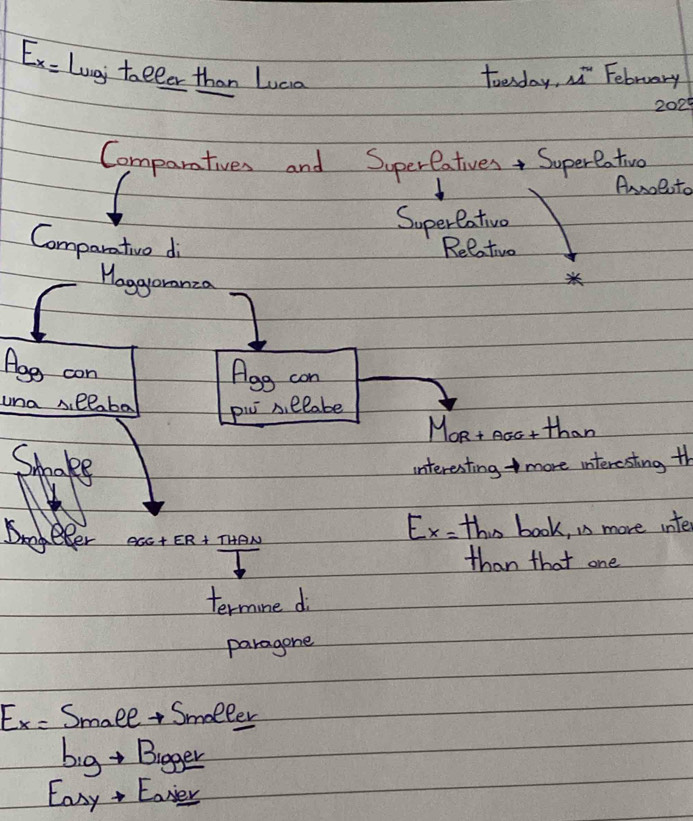 Ex = Luigi taller than Lucia
tuesday, 11th February
2025
Comparatives and Superlatives → Superlativo
Assoluto
Superlativo
Relativo
*
Comparativo di
Maggioranza
Agg con
una sillaba
Agg con
più sillabe
MOR + AGG + than
interesting → more interesting th
Smaller
AGG + ER + THAN
Ex = this book, is more inte
than that one
termine di
paragone
Ex = Small → Smaller
big → Bigger
Easy → Easier